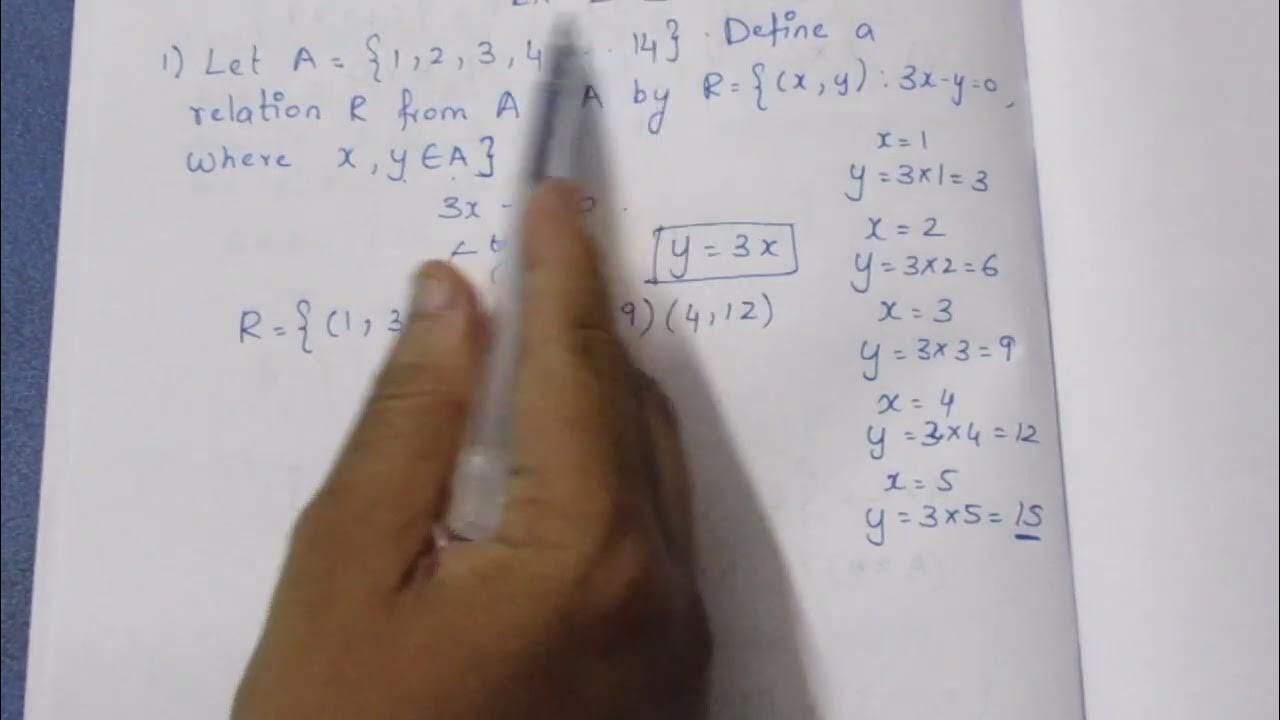 1) Let A = {1, 2, 3, 4 .. 14} . Define a
relation R from A A by R = {(x, y) : 3x-y=0,
where x, y ∈ A}
3x -
y = 3x
R = {(1, 3 9) (4, 12)
x = 1
y = 3×1 = 3
x = 2
y = 3×2 = 6
x = 3
y = 3×3 = 9
x = 4
y = 3×4 = 12
x = 5
y = 3×5 = 15